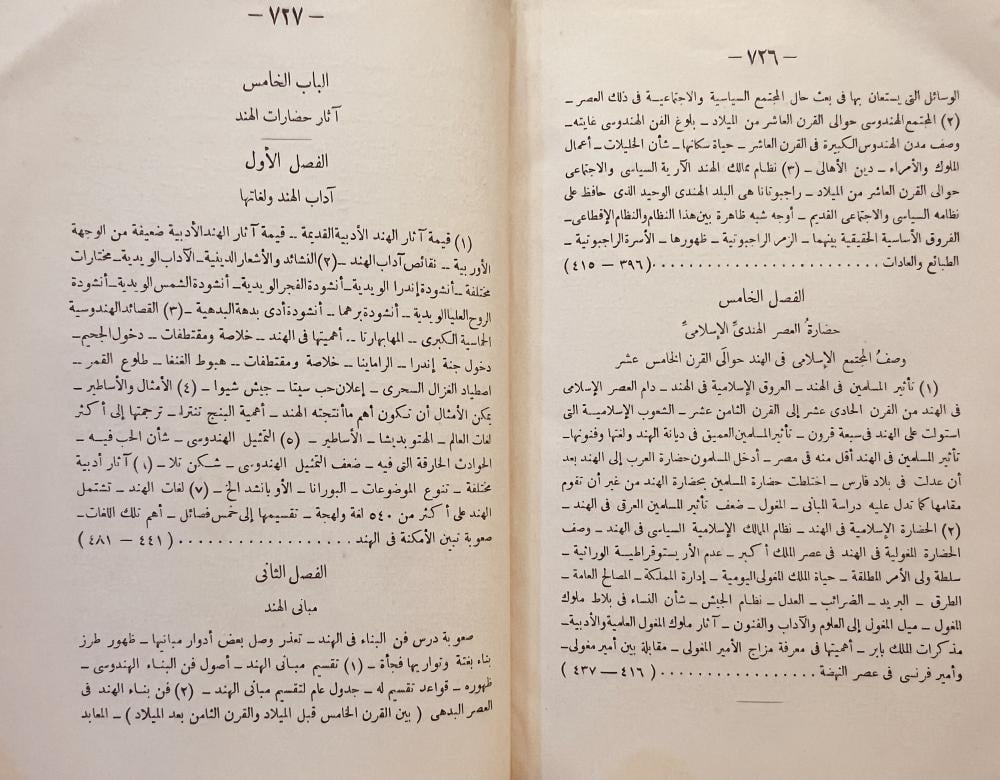 — ٧٢٦ —
الوسائل التى يستعان بها فى بعث حال المجتمع السياسية والاجتماعيــة فى ذلك العصر ــ
(٢) المجتمع الهندوسى حوالى القرن العاشر من الميلاد ــ بلوغ الفن الهندوسى غايته ــ
وصف مدن الهندوس الكبيرة فى القرن العاشر ــ حياة سكانها ــ شأن الخليلات ــ أعمال
الملوك والأمراء ــ دين الأهالى ــ (٣) نظـام ممالك الهند الآرية السياسى والاجتماعى
حوالى القرن العاشر من الميلاد ــ راجبوتانا هى البلد الهندى الوحيد الذى حافظ على
نظامه السياسى والاجتماعى القديم ــ أوجه شبه ظاهرة بين هذا النظام والنظام الإقطاعى ــ
الفروق الأساسية الحقيقية بينهما ــ الزمر الراجبوتية ــ ظهورها ــ الأسرة الراجبوتية ــ
الطبائع والعادات ........................... (٣٩٦ — ٤١٥)
الفصل الخامس
حضارةُ العصر الهندىِّ الإسلامىِّ
وصفُ المجتمع الإسلامى فى الهند حوالَى القرن الخامس عشر
(١) تأثير المسلمين فى الهند ــ العروق الإسلامية فى الهند ــ دام العصر الإسلامى
فى الهند من القرن الحادى عشر إلى القرن الثامن عشر ــ الشعوب الإسلاميــة التى
استولت على الهند فى سبعة قرون ــ تأثير المسلمين العميق فى ديانة الهند ولغتها وفنونها ــ
تأثير المسلمين فى الهند أقل منه فى مصر ــ أدخل المسلمون حضارة العرب إلى الهند بعد
أن عدلت فى بلاد فارس ــ اختلطت حضارة المسلمين بحضارة الهند من غير أن تقوم
مقامها كما تدل عليه دراسة المبانى ــ المغول ــ ضعف تأثير المسلمين العرقى فى الهند ــ
(٢) الحضارة الإسلامية فى الهند ــ نظام الممالك الإسلامية السياسى فى الهند ــ وصف
الحضارة المغولية فى الهند فى عصر الملك أكبر ــ عدم الأريستوقراطيــة الوراثية ــ
سلطة ولى الأمر المطلقة ــ حياة الملك المغولى اليومية ــ إدارة المملكة ــ المصالح العامة ــ
الطرق ــ البريد ــ الضرائب ــ العدل ــ نظـام الجيش ــ شأن النساء فى بلاط ملوك
المغول ــ ميل المغول إلى العلوم والآداب والفنون ــ آثار ملوك المغول العلمية والأدبية ــ
مذكرات الملك بابر ــ أهميتها فى معرفة مزاج الأمير المغولى ــ مقابلة بين أمير مغولى ــ
وأمير فرنسى فى عصر النهضة .................. (٤١٦ — ٤٣٧)
— ٧٢٧ —
الباب الخامس
آثار حضارات الهند
الفصل الأول
آداب الهند ولغاتها
(١) قيمة آثار الهند الأدبية القديمة ــ قيمة آثار الهند الأدبية ضعيفة من الوجهة
الأوربية ــ نقائص آداب الهند ــ (٢) النشائد والأشعار الدينية ــ الآداب الويدية ــ مختارات
مختلفة ــ أنشودة إندرا الويدية ــ أنشودة الفجر الويدية ــ أنشودة الشمس الويدية ــ أنشودة
الروح العليا الويدية ــ أنشودة برهما ــ أنشودة أدى بدهة البدهية ــ (٣) القصائد الهندوسية
الحماسية الكبرى ــ المهابهارتا ــ أهميتها فى الهند ــ خلاصة ومقتطفات ــ دخول الجحيم ــ
دخول جنة إندرا ــ الراماينا ــ خلاصة ومقتطفات ــ هبوط الغنغا ــ طلوع القمر ــ
اصطياد الغزال السحرى ــ إعلان حب سيتا ــ جيش شيوا ــ (٤) الأمثال والأساطير ــ
يمكن الأمثال أن تكون أهم ما أنتجته الهند ــ أهمية البنج تنترا ــ ترجمتها إلى أكثر
لغات العالم ــ الهتوبديشا ــ الأساطير ــ (٥) التمثيل الهندوسى ــ شأن الحب فيــه ــ
الحوادث الخارقة التى فيه ــ ضعف التمثيل الهندوسى ــ شــكن تلا ــ (٦) آثار أدبية
مختلفة ــ تنوع الموضوعات ــ البورانا ــ الأوبانشد الخ ــ (٧) لغات الهند ــ تشتمل
الهند على أكثر من ٥٤٠ لغة ولهجة ــ تقسيمها إلى خمس فصائل ــ أهم تلك اللغات ــ
صعوبة تبين الأمكنة فى الهند .................. (٤٤١ — ٤٨١)
الفصل الثانى
مبانى الهند
صعوبة درس فن البناء فى الهند ــ تعذر وصل بعض أدوار مبانيها ــ ظهور طرز
بناء بغتة وتواريها فجأة ــ (١) تقسيم مبانى الهند ــ أصول فن البنـاء الهندوسى ــ
ظهوره ــ قواعد تقسيم له ــ جدول عام لتقسيم مبانى الهند ــ (٢) فن بنـاء الهند فى
العصر البدهى ( بين القرن الخامس قبل الميلاد والقرن الثامن بعد الميلاد ) ــ المعابد